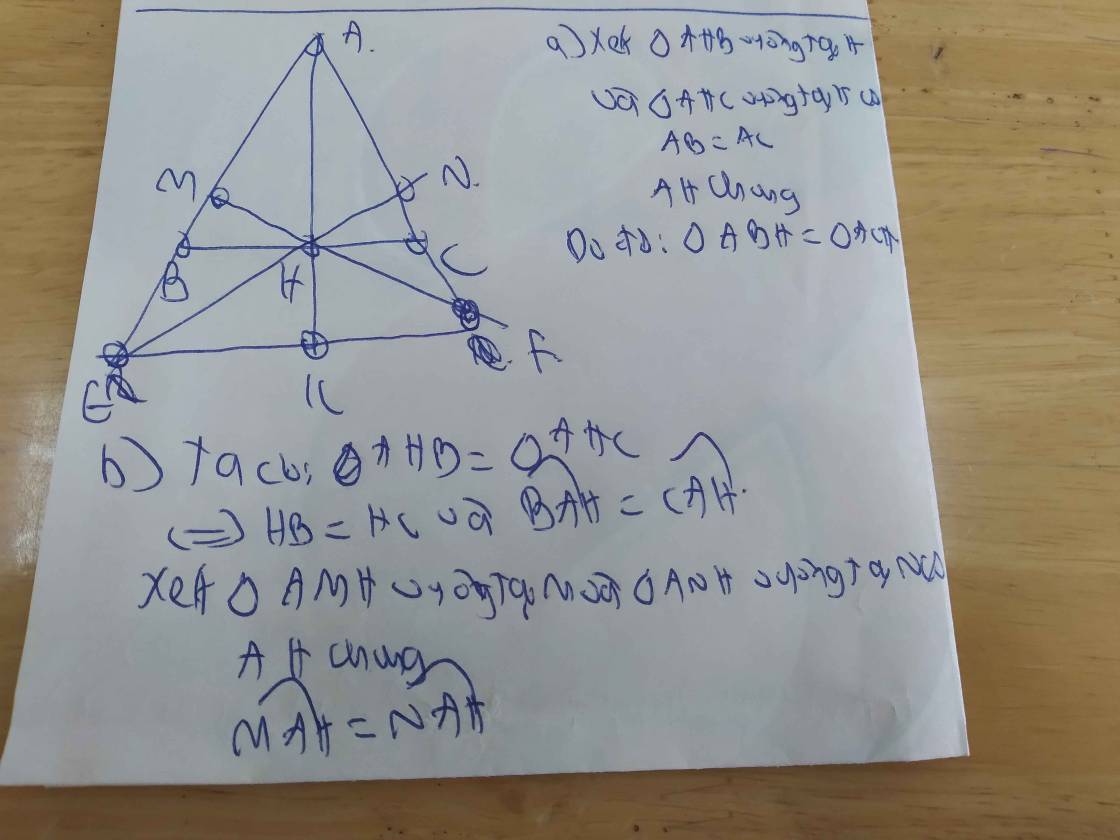 A.
M
N.
B
H
C
E
K
F.
a) Xét Δ AHB vuông tại H
và Δ AHC vuông tại H có
AB = AC
AH chung
Do đó: Δ ABH = Δ ACH
b) Ta có: Δ AHB = Δ AHC
<=> HB = HC và BAH = CAH.
Xét Δ AMH vuông tại M và Δ ANH vuông tại N có
AH chung
MAH = NAH